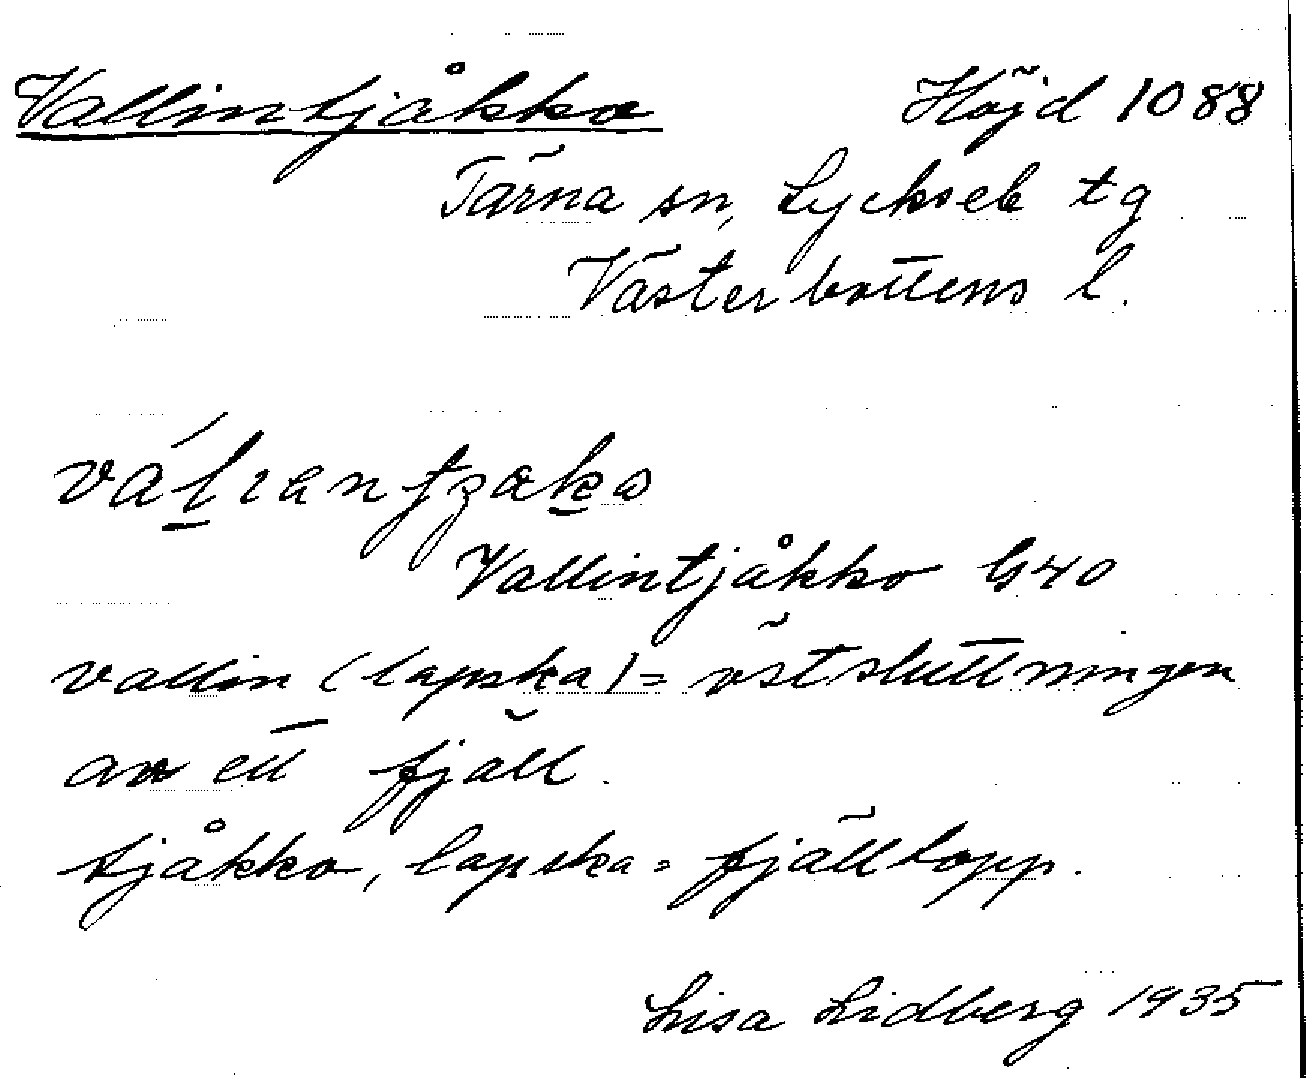 Vallintjåkko Höjd 1088
Tärna sn, Lycksele tg
Västerbottens l.
Vallintjåkko G40
vallin (lapska) = östsluttningen
av ett fjäll.
tjåkko, lapska = fjälltopp.
Lisa Lidberg 1935